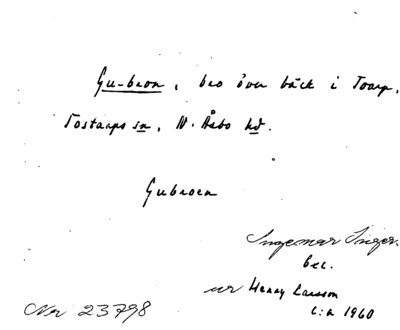 Gu-bron, bro över bäck i Toarp,
Tostarps sn, N. Åsbo hd.
Gubroen
Ingemar Ingers
bec.
ur Henry Larsson
c:a 1960
Nr 23798